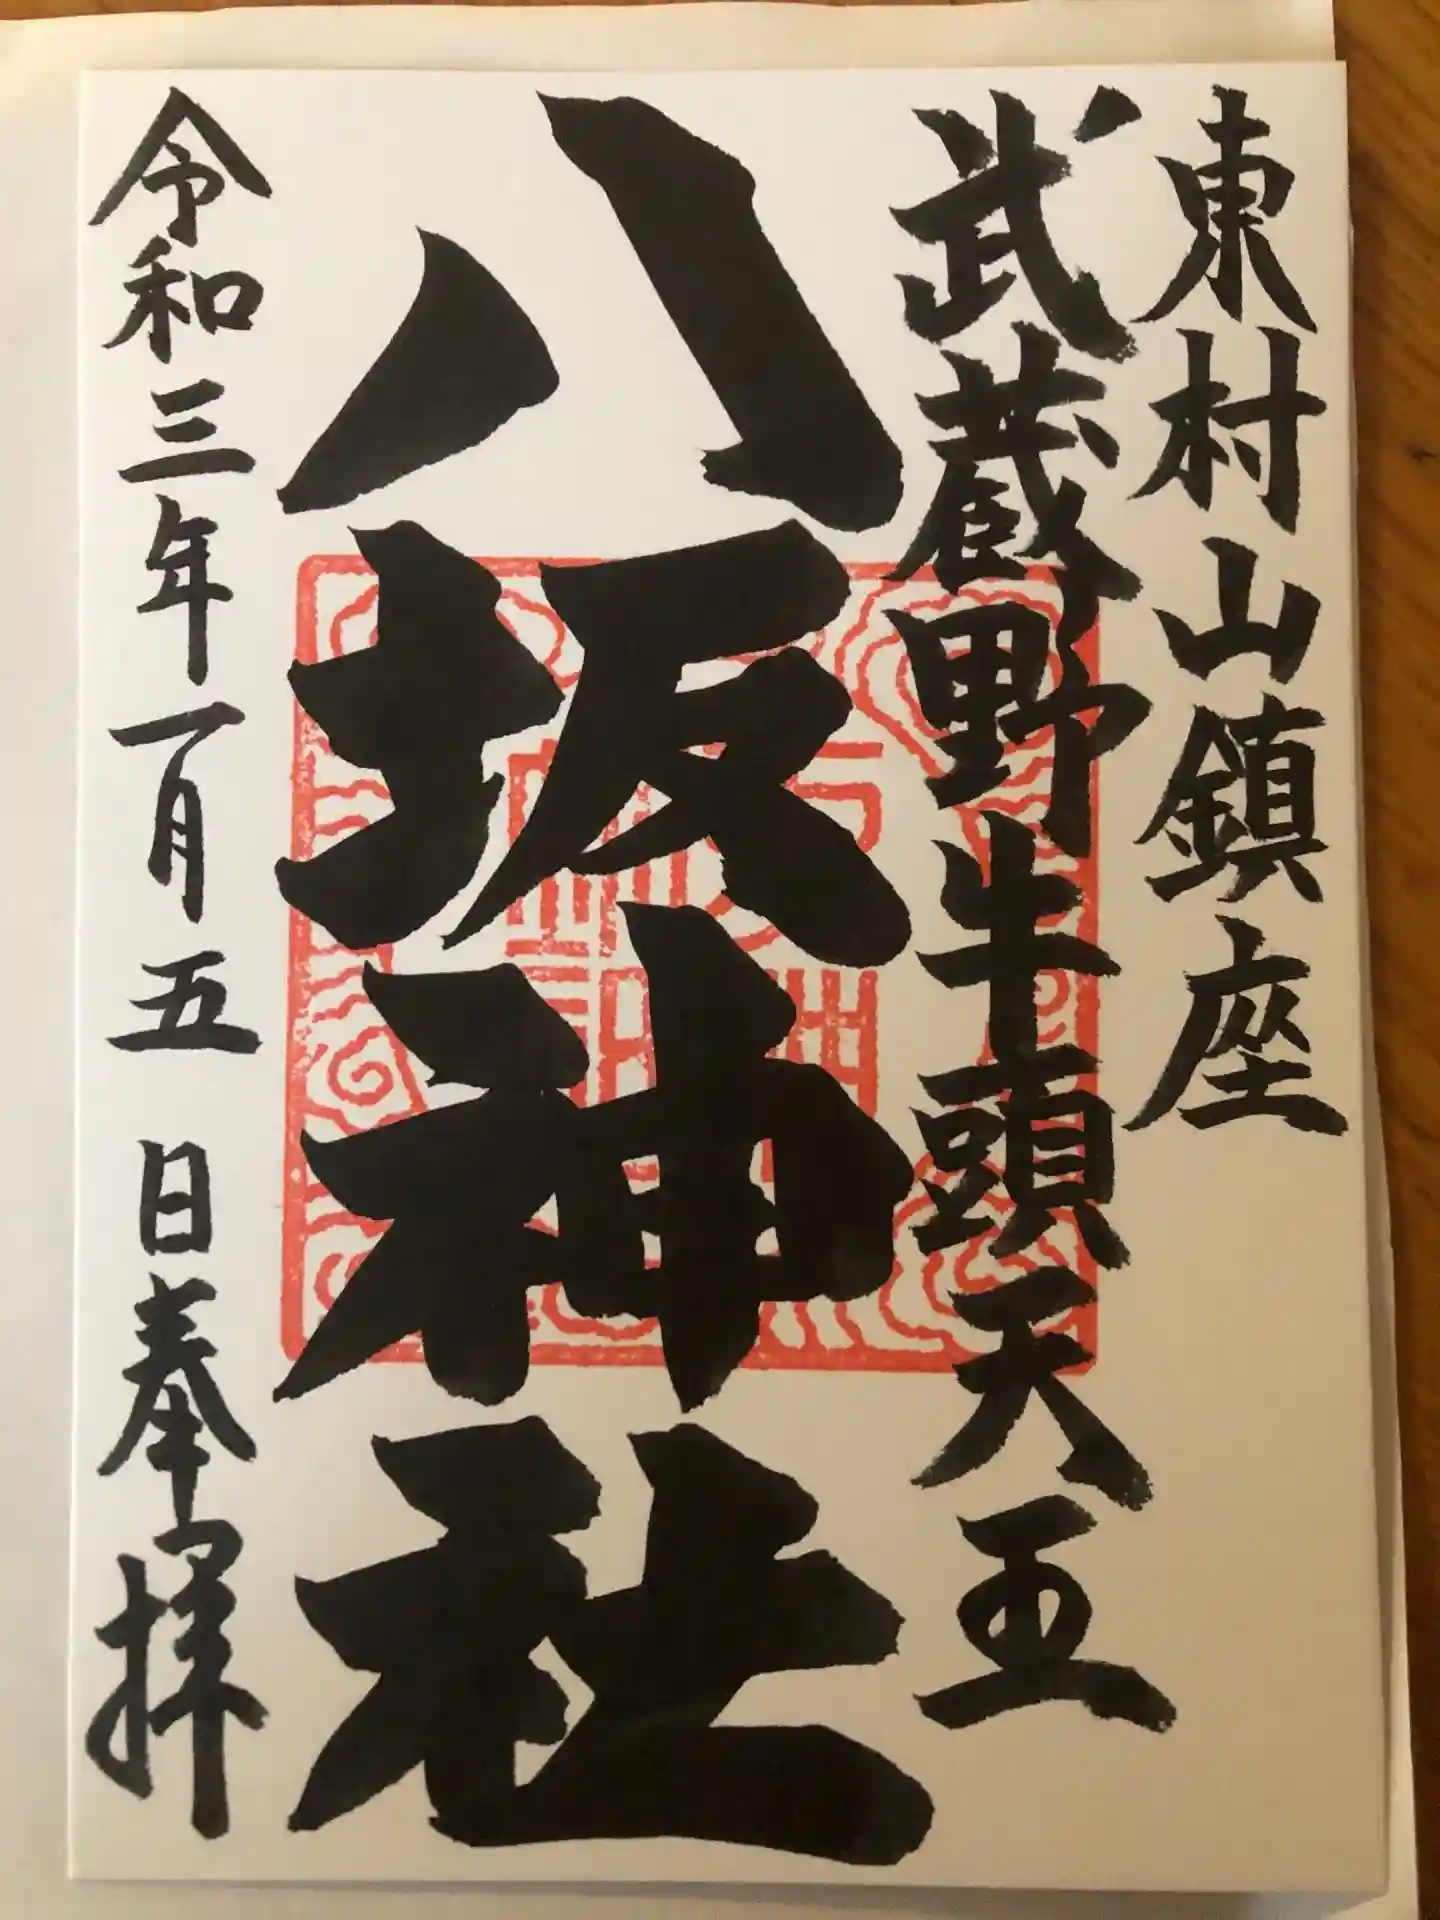 東村山鎮座
武蔵野牛頭天王
八坂神社
令和三年一月五日奉拝